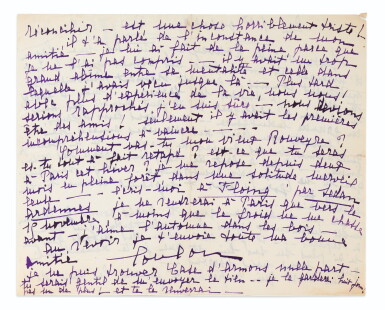 réconcilier – est une chose horriblement triste !
il t'a parlé de l'inconstance de mon
amitié – je lui ai fait de la peine parce que
je ne l'ai pas compris – il y avait un trop
grand abîme entre sa mentalité et celle dans
laquelle j'avais vécu jusque là – Plus tard
avec plus d'expérience de la vie nous nous
serions rapprochés, j'en suis sûre – nous devions
être des amis ! seulement il y avait les premières
incompréhensions à vaincre –
Comment vas-tu mon vieux Rouveyre ?
es-tu tout à fait retapé ? est-ce que tu seras
à Paris cet hiver ? je me repose depuis deux
mois en pleine forêt dans une solitude merveil
leuse – écris-moi à Floing par Sedan
Ardennes je ne rentrerai à Paris que vers le
15 novembre à moins que le froid ne me chasse
avant – j'aime l'automne dans les bois –
Au revoir je t'envoie toute ma bonne
amitié
je ne puis trouver Case d'Armons nulle part –
tu serais gentil de m'envoyer le tien – je le garderai huit jours
pas un de plus ! et te le renverrai –